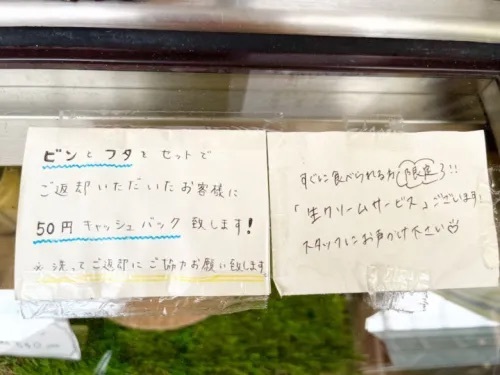 ビンとフタをセットで
ご返却いただいたお客様に
50円 キャッシュバック 致します!
※洗ってご返却にご協力お願い致します。
すぐに食べられる方 限定!!
「生クリームサービス」ございます!
スタッフにお声がけ下さい